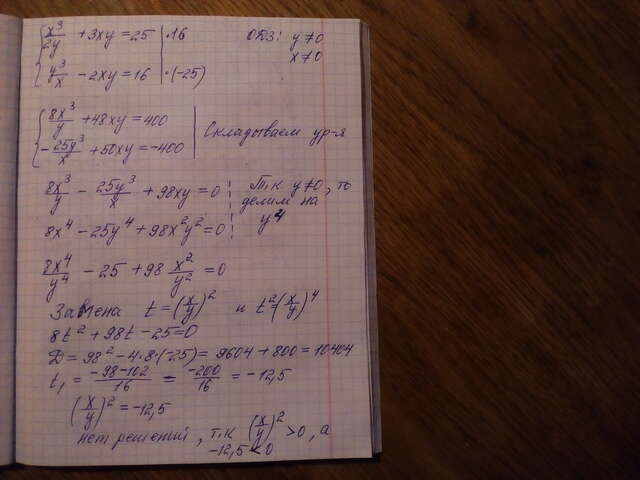 { x³/2y + 3xy = 25 | ·16 ОДЗ: y ≠ 0
{ y³/x − 2xy = 16 | ·(−25) x ≠ 0
{ 8x³/y + 48xy = 400
{ −25y³/x + 50xy = −400 | Складываем ур-я
8x³/y − 25y³/x + 98xy = 0 | Т.к y ≠ 0, то
делим на
8x⁴ − 25y⁴ + 98x²y² = 0 | y⁴
8x⁴/y⁴ − 25 + 98 x²/y² = 0
Замена t = (x/y)² и t² = (x/y)⁴
8t² + 98t − 25 = 0
D = 98² − 4·8·(−25) = 9604 + 800 = 10404
t₁ = (−98−102)/16 = −200/16 = −12,5
(x/y)² = −12,5
нет решений, т.к (x/y)² > 0, а
−12,5 < 0